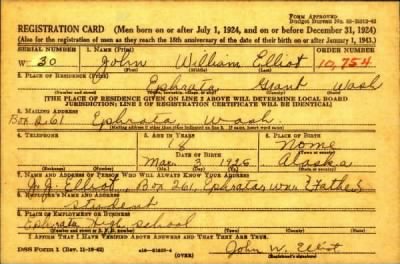 Form Approved
Budget Bureau No.
REGISTRATION CARD (Men born on or after July 1, 1924, and on or before December 31, 1924)
(Also for the registration of men as they reach the 18th anniversary of the date of their birth on or after January 1, 1943.)
SERIAL NUMBER 1. NAME (Print) ORDER NUMBER
W 30 John William Elliot 10,754
(First) (Middle) (Last)
2. PLACE OF RESIDENCE (Print)
Ephrata Grant Wash
(THE PLACE OF RESIDENCE GIVEN ON LINE 2 ABOVE WILL DETERMINE LOCAL BOARD
JURISDICTION; LINE 2 OF REGISTRATION CERTIFICATE WILL BE IDENTICAL)
3. MAILING ADDRESS
Box 261 Ephrata Wash.
4. TELEPHONE 5. AGE IN YEARS 6. PLACE OF BIRTH
18 Nome
DATE OF BIRTH (Town or county)
Mar 3 1925 Alaska
(Exchange) (Number) (Mo.) (Day) (Yr.) (State or country)
7. NAME AND ADDRESS OF PERSON WHO WILL ALWAYS KNOW YOUR ADDRESS
Elliot Box 261, Ephrata, Wn (Father)
8. EMPLOYER'S NAME AND ADDRESS
student
9. PLACE OF EMPLOYMENT OR BUSINESS
Ephrata High School
I AFFIRM THAT I HAVE VERIFIED ABOVE ANSWERS AND THAT THEY ARE TRUE.
DSS Form 1 (Rev. 11-16-42) (OVER) John W. Elliot
(Registrant's signature)